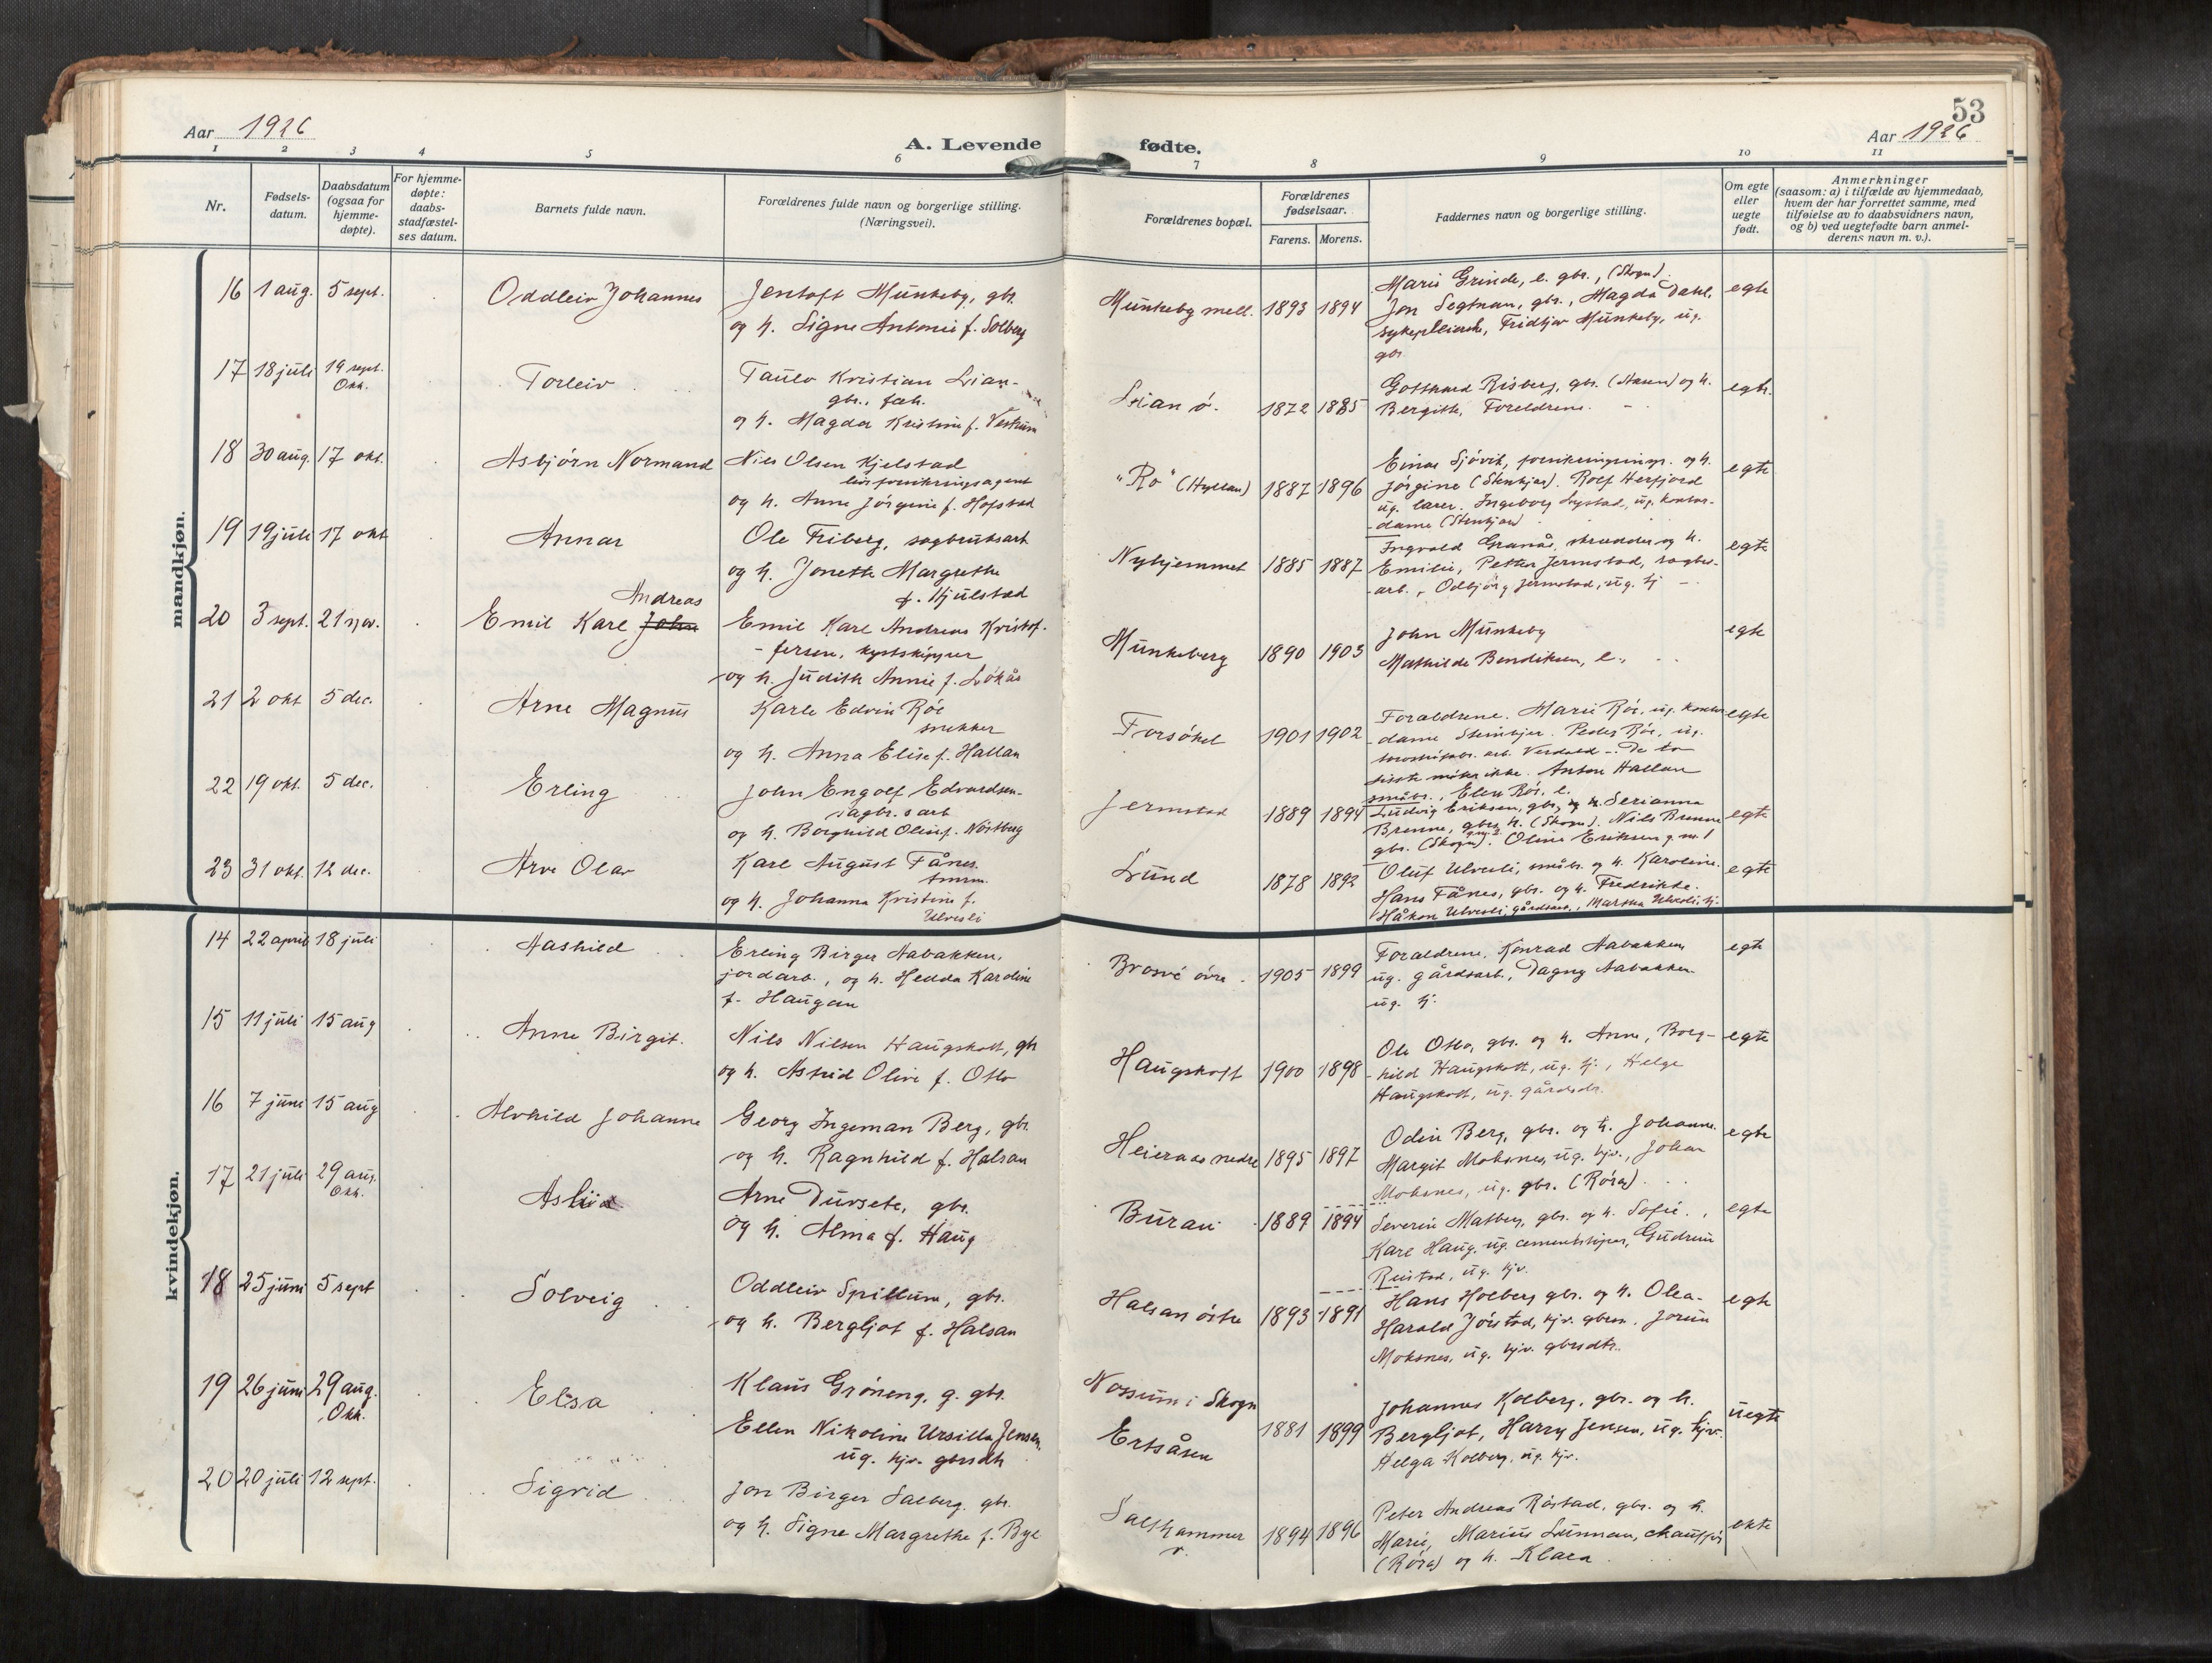 53
Aar 1926
A. Levende fødte.
Aar 1926
1 2 3 4 5 6 7 8 9 10 11
Nr.
Fødsels-
datum.
Daabsdatum
(ogsaa for
hjemme-
døpte).
For hjemme-
døpte:
daabs-
stadfæstel-
ses datum.
Barnets fulde navn.
Forældrenes fulde navn og borgerlige stilling.
(Næringsvei).
Forældrenes bopæl.
Forældrenes
fødselsaar.
Farens. Morens.
Faddernes navn og borgerlige stilling.
Om egte
eller
uegte
født.
Anmerkninger
(saasom: a) i tilfælde av hjemmedaab,
hvem der har forrettet samme, med
tilføielse av to daabsvidners navn,
og b) ved uegtefødte barn anmel-
derens navn m. v.).
mandkjøn.
16 1 aug. 5 sept. Oddleiv Johannes
Jentoft Munkeby, gbr.
og h. Signe Antonie f. Solberg
Munkeby mell. 1893 1894
Marie Grinde, e. gbr., (Skogn).
Jon Segtnan, gbr., Magda Dahl,
sykepleierske, Fridtjov Munkeby, ug.
gbr.
egte
17 18 juli 19 sept.
Okk.
Torleiv
Paulo Kristian Lian
gbr., fæh.
og h. Magda Kristine f.
Lian ø. 1872 1885
Gotthard Risberg, gbr. (Aasen) og h.
Bergitte, Foreldrene.
egte.
18 30 aug. 17 okt. Asbjörn Normand
Nils Olsen Kjelstad
livsforsikringsagent
og h. Anne Jörgine f. Hofstad
"Ro" (Hyllan) 1887 1896
Einar Sjövik, forsikringsinsp. og h.
Jörgine (Stenkjer). Rolf Herfjord
ug. lærer. Ingeborg Lystad, ug. kontor-
dame (Stenkjær)
egte
19 19 juli 17 okt Annar
Ole Friberg, sagbruksarb
og h. Jonette Margrethe
f. Hjulstad
Nyhjemmet 1885 1887
Ingvald Granås, skrædder og h.
Emilie, Petter Jermstad, sagbr.-
arb., Odbjörg Jermstad, ug. tj
egte
20 3 sept. 21 nov. Emil Karl John Andreas
Emil Karl Andreas Kristof-
fersen, kystskipper
og h. Judith Annie f. Lökås
Munkeberg 1890 1903
John Munkeby
Mathilde Bendiksen, e.,
egte
21 2 okt 5 dec. Arne Magnus
Karle Edvin Röe
snekker
og h. Anna Elise f. Hallan
Forsöket 1901 1902
Foraldrene. Marie Röe, ug. kontor-
dame Steinkjer. Peder Röe, ug.
arb. Verdal. De to
sisste möter ikke. Anton Hallan
småbr., Elen Röe, e.
egte
22 19 okt. 5 dec. Erling
John Engolf Edvardsen
sagbr.s arb
og h. Borghild Oline f. Nöstberg
Jermstad 1889 1894
Ludvig Eriksen, gbr. og h. Serianna
Brenne, gbrs h. (Skogn). Nils Brenne
gbr. (Skogn). Oline Eriksen g. m. 1
egte
23 31 okt. 12 dec. Arve Olav
Karl August Fånes
tømm.
og h. Johanna Kristine f.
Ulvesli
Lund 1878 1892
Oluf Ulvesli, småbr. og h. Karoline.
Hans Fånes, gbr. og h. Fredrikke.
Håkon Ulvesli, gårdsarb., Martha Ulvesli, tj.
egte
kvindekjøn.
14 22 april 18 juli Aashild
Erling Birger Aabakken,
jordarb., og h. Hedda Karoline
f. Haugan
Brosvé övre 1905 1899
Foraldrene, Konrad Aabakken
ug. gårdsarb., Dagny Aabakken
ug. tj.
egte
15 11 juli 15 aug Anne Birgit.
Nils Nilsen Haugskott, gbr
og h. Astrid Olive f. Otto
Haugskott 1900 1898
Ole Otto, gbr. og h. Anne, Borg-
hild Haugskott, ug. tj., Helge
Haugskott, ug. gårdsdr.
egte
16 7 juni 15 aug Alvhild Johanne
Georg Ingeman Berg, gbr.
og h. Ragnhild f. Halsan
Heieraas nedre 1895 1897
Odin Berg, gbr. og h. Johanne.
Margit Moksnes, ug. hjv., Johan
Moksnes, ug. gbr. (Röra).
egte
17 21 juli 29 aug.
Okk.
Arne Dursete, gbr.
og h. Alma f. Haug
Buran 1889 1894
Severin Matberg, gbr. og h. Sofie.,
Karl Haug, ug. cementstöper, Gudrun
Rustad, ug. hjv.
egte
18 25 juni 5 sept Solveig
Oddleiv Spillum, gbr.
og h. Bergljot f. Halsan
Halsan östre 1893 1891
Hans Holberg gbr. og h. Olea.
Harald Jörstad, hjv. gbrsn. Jorun
Moksnes, ug. hjv. gbrsdtr.
egte
19 26 juni 29 aug.
Okk.
Elsa
Klaus Gröneng, g. gbr.
Ellen Nikoline Ursilla Jensen,
ug. hjv. gbrsdtr
Nossum i Skogn
Ertsåsen
1881 1899
Johannes Kolberg, gbr. og h.
Bergljot, Harry Jensen, ug. hjv.
Helga Kolberg, ug. hjv.
uegte
20 20 juli 12 sept. Sigrid
Jon Birger Salberg, gbr.
og h. Signe Margrethe f. Bye
Salthammer
v.
1894 1896
Peter Andreas Röstad, gbr. og h.
Marie, Marius Lunnan, chaufför
(Röra) og h. Klara.
ekte